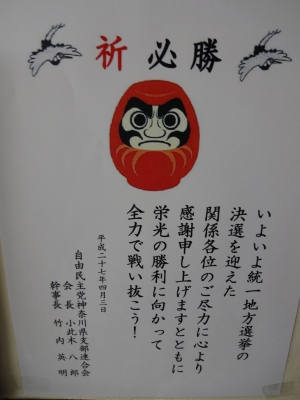 祈必勝
いよいよ統一地方選挙の
決選を迎えた
関係各位のご尽力に心より
感謝申し上げますとともに
栄光の勝利に向かって
全力で戦い抜こう!
平成二十七年四月三日
自由民主党神奈川県支部連合会
会長 小此木 八郎
幹事長 竹内 英明